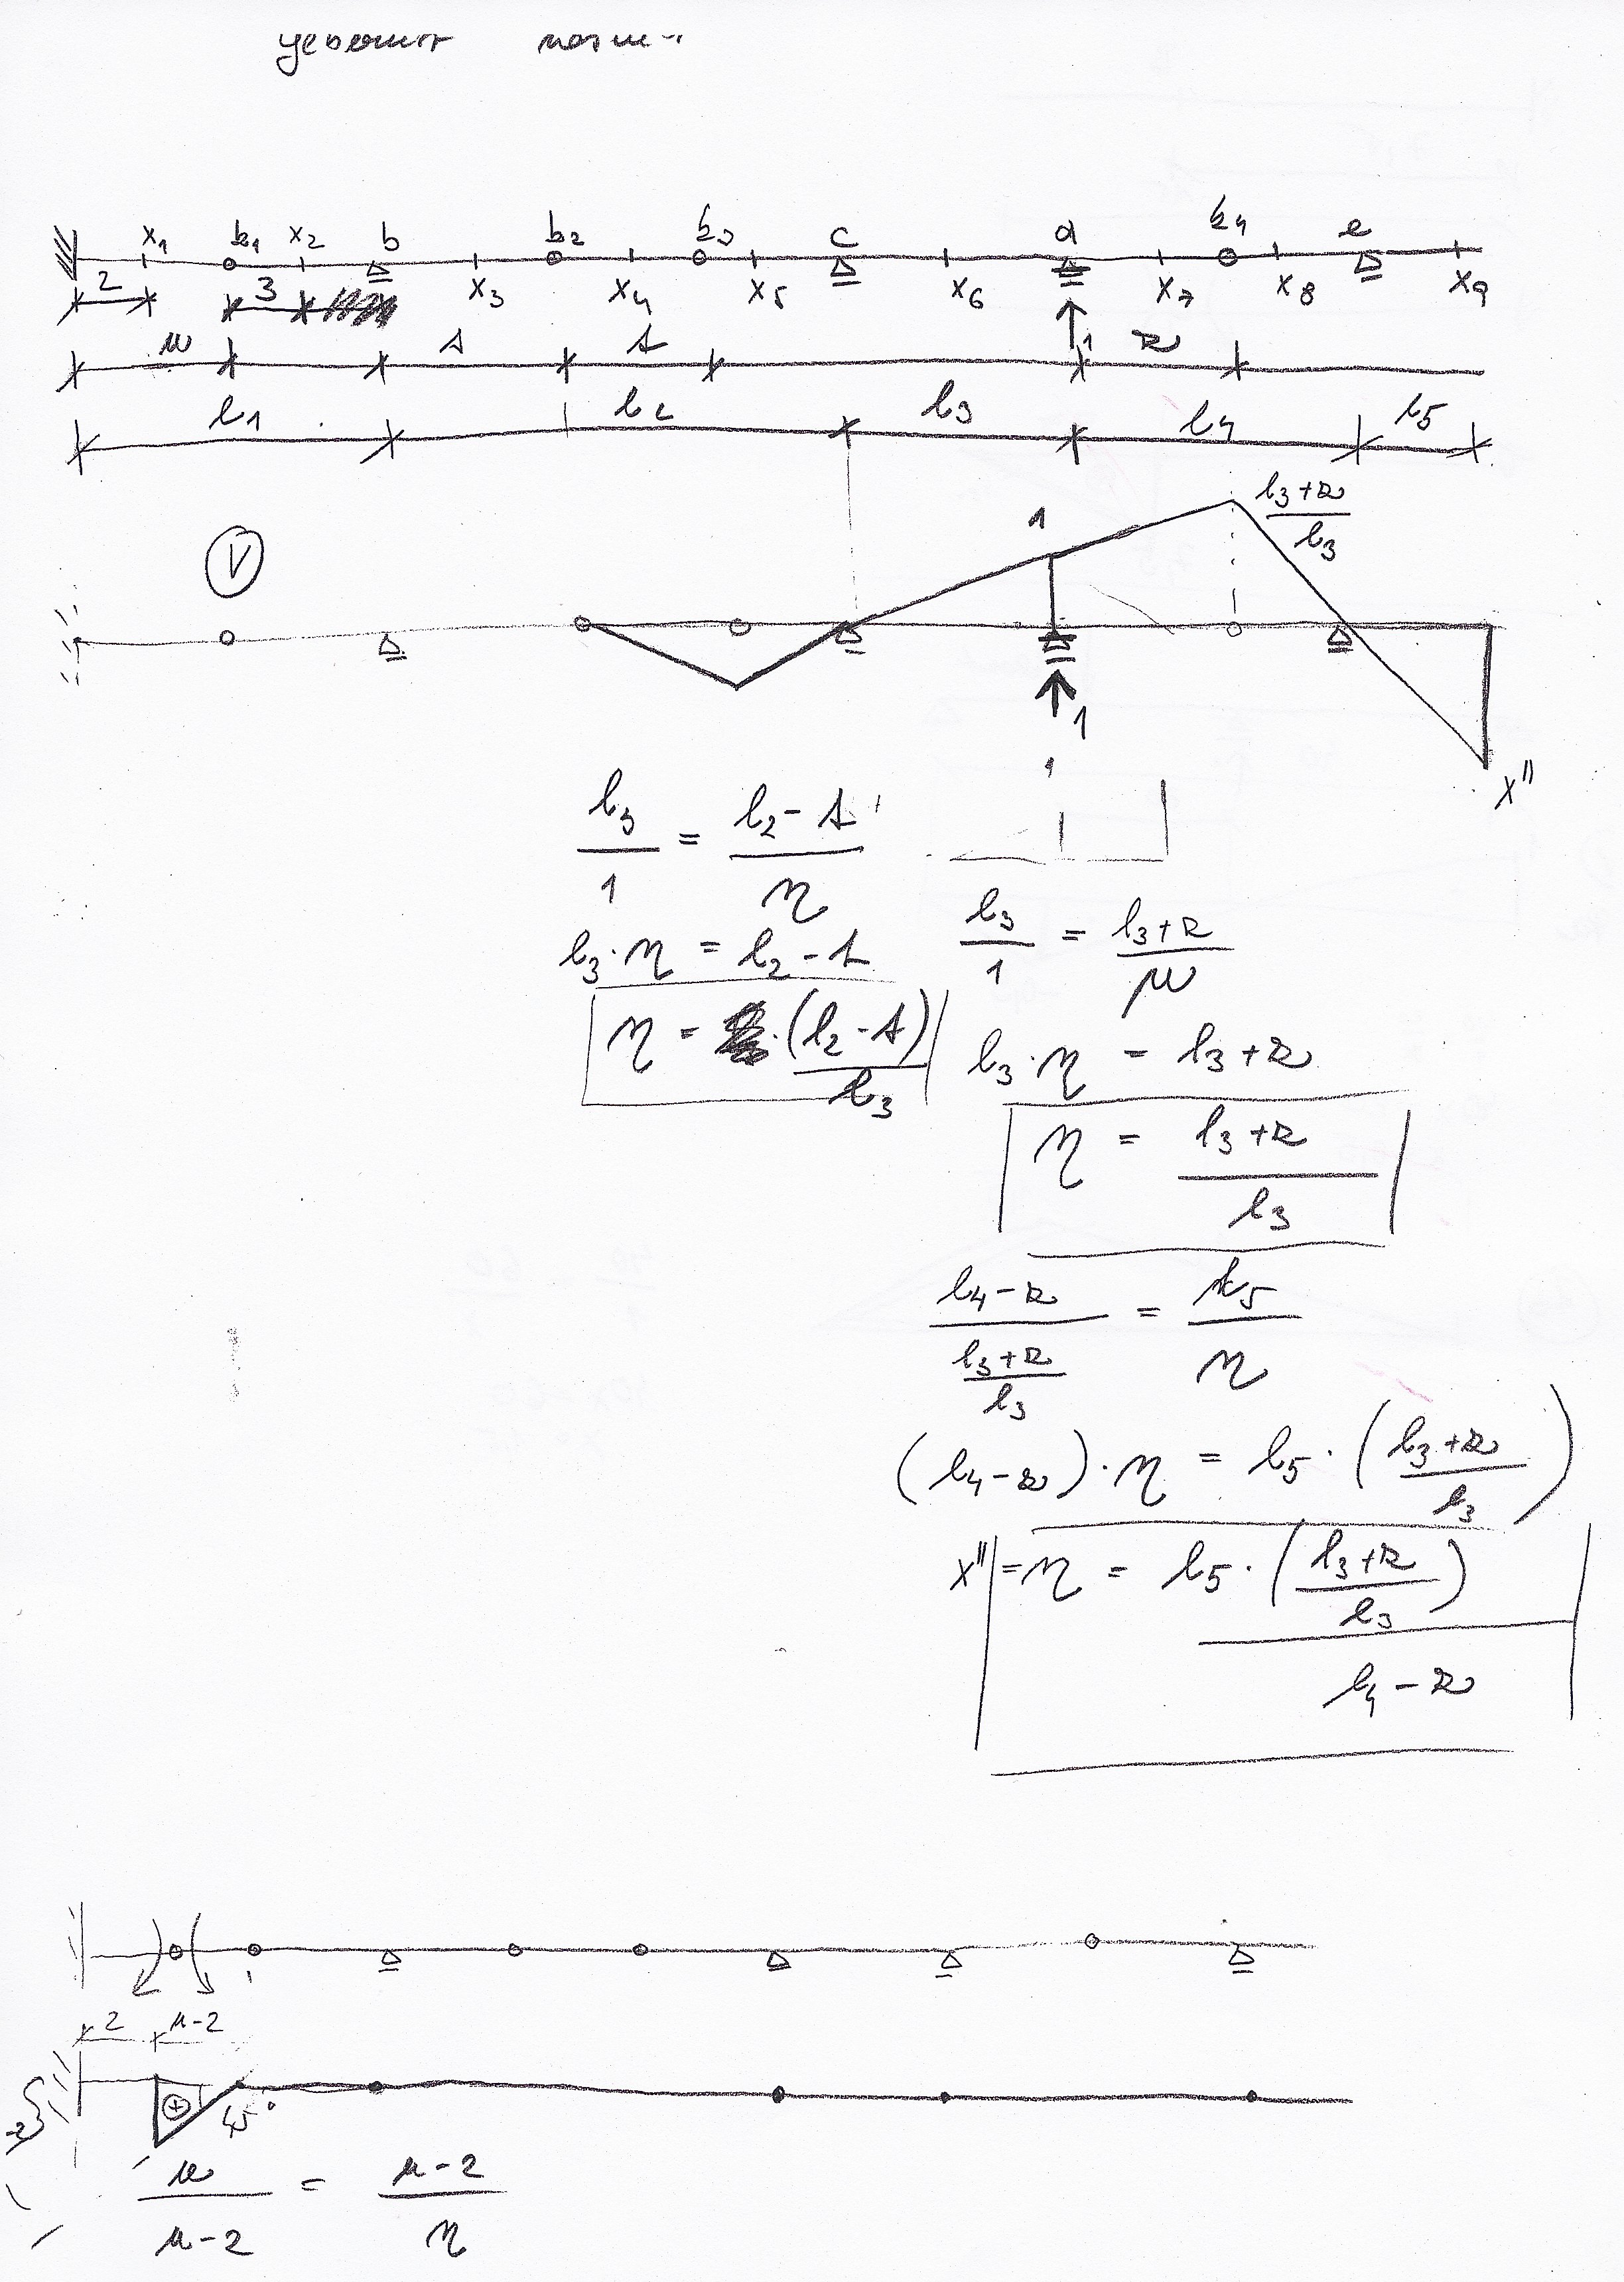 x₁ k₁ x₂ b k₂ k₃ c d k₄ e
2 3 x₃ x₄ x₅ x₆ x₇ x₈ x₉
u s t 1 r
l₁ l₂ l₃ l₄ l₅
V 1 (l₃+r)/l₃
1
x''
l₃/1 = (l₂-t)/η
l₃·η = l₂-t
η = (l₂-t)/l₃
l₃/1 = (l₃+r)/η
l₃·η = l₃+r
η = (l₃+r)/l₃
(l₄-r)/((l₃+r)/l₃) = l₅/η
(l₄-r)·η = l₅·((l₃+r)/l₃)
x'' = η = l₅·((l₃+r)/l₃)/(l₄-r)
2 u-2
+ 45°
u/(u-2) = (u-2)/η